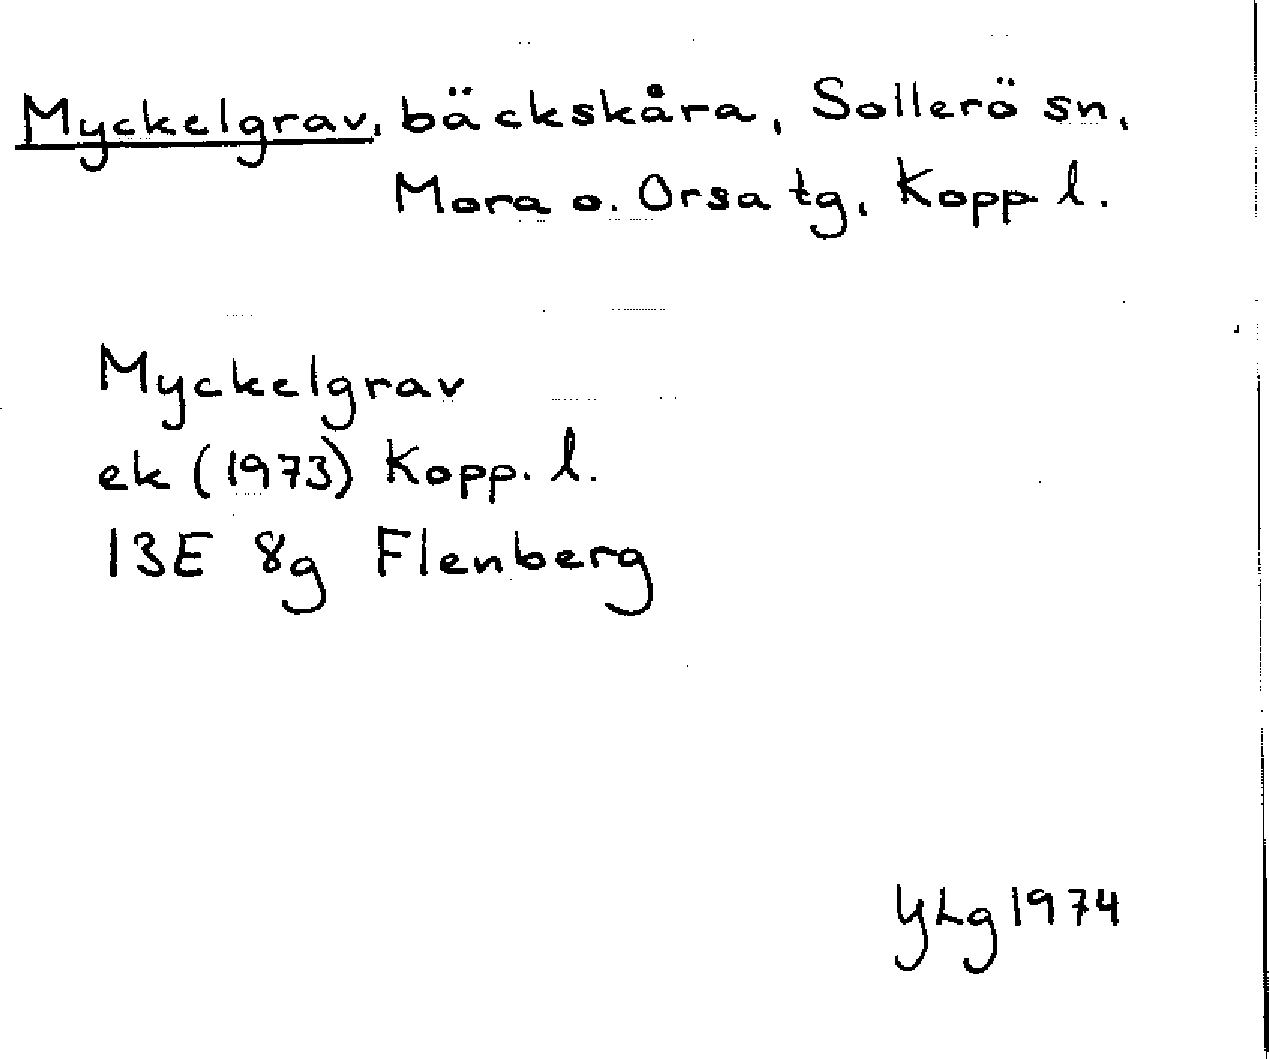 Myckelgrav, bäckskåra, Sollerö sn,
Mora o. Orsa tg, Kopp l.
Myckelgrav
ek (1973) Kopp. l.
13E 8g Flenberg
YLg 1974